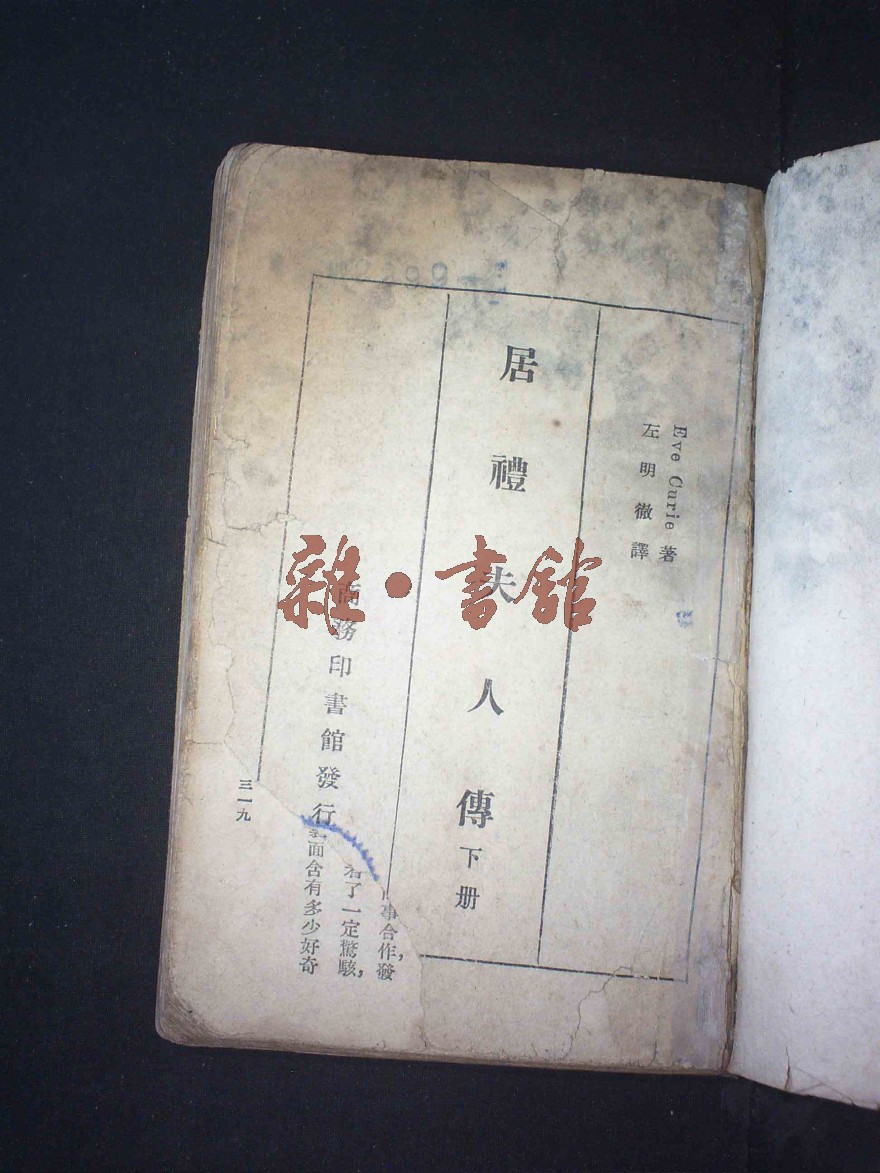 Eve Curie 著
左明徹譯
居禮夫人傳 下册
商務印書館發行
事合作，發
了一定驚駭，
面含有多少好奇
三一九
雜·書館